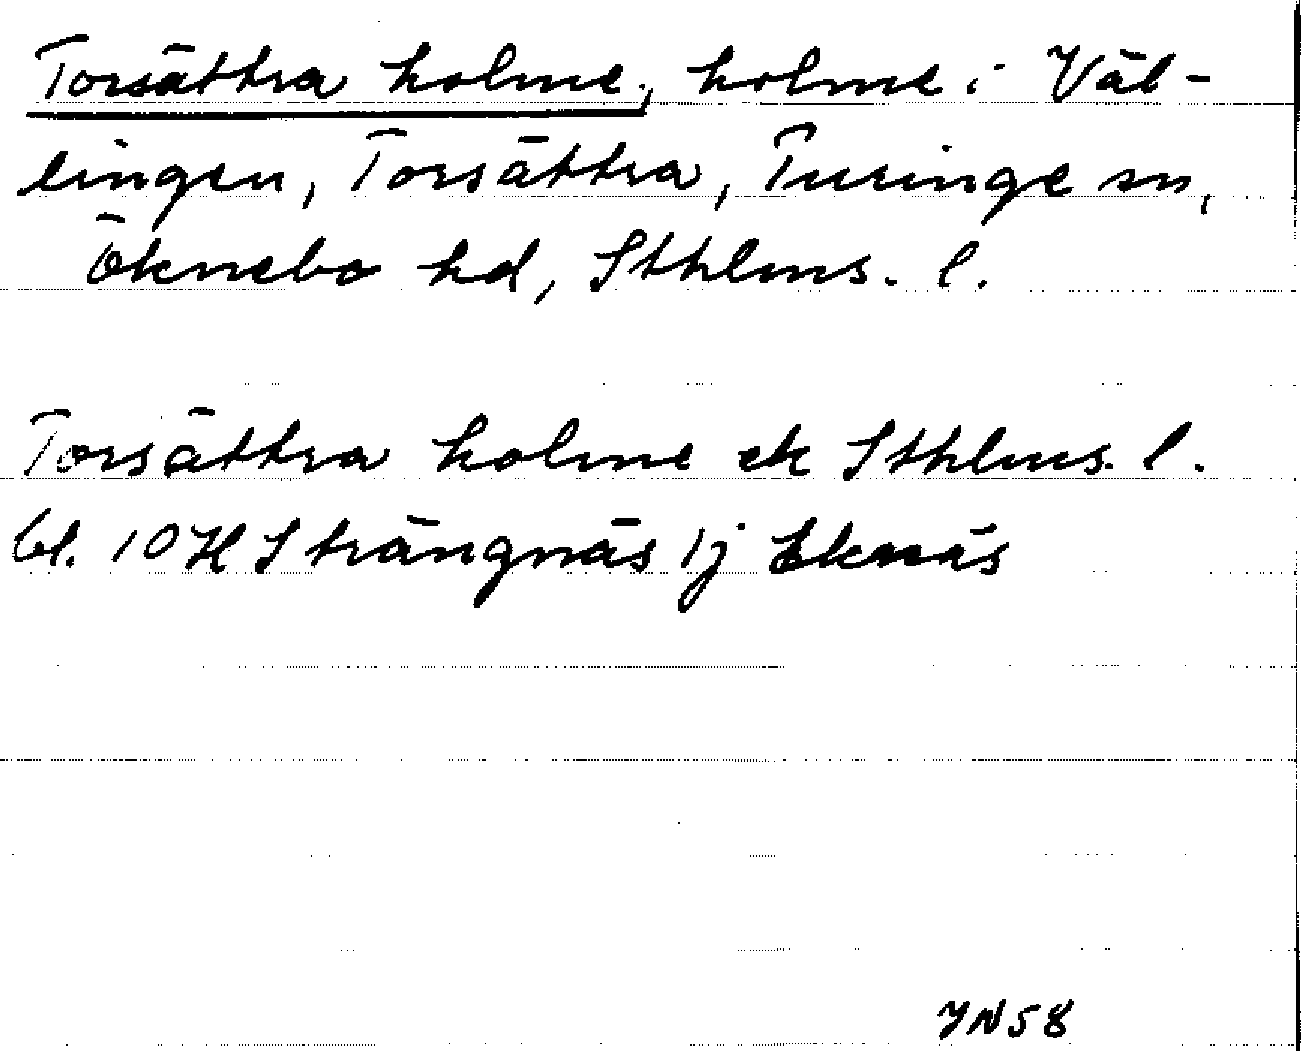 Torsättra holme, holme i Väl-
lingen, Torsättra, Turinge sn,
Öknebo hd, Sthlms. l.
Torsättra holme ek Sthlms. l.
bl. 10 H Strängnäs 1j Eknäs
YN58